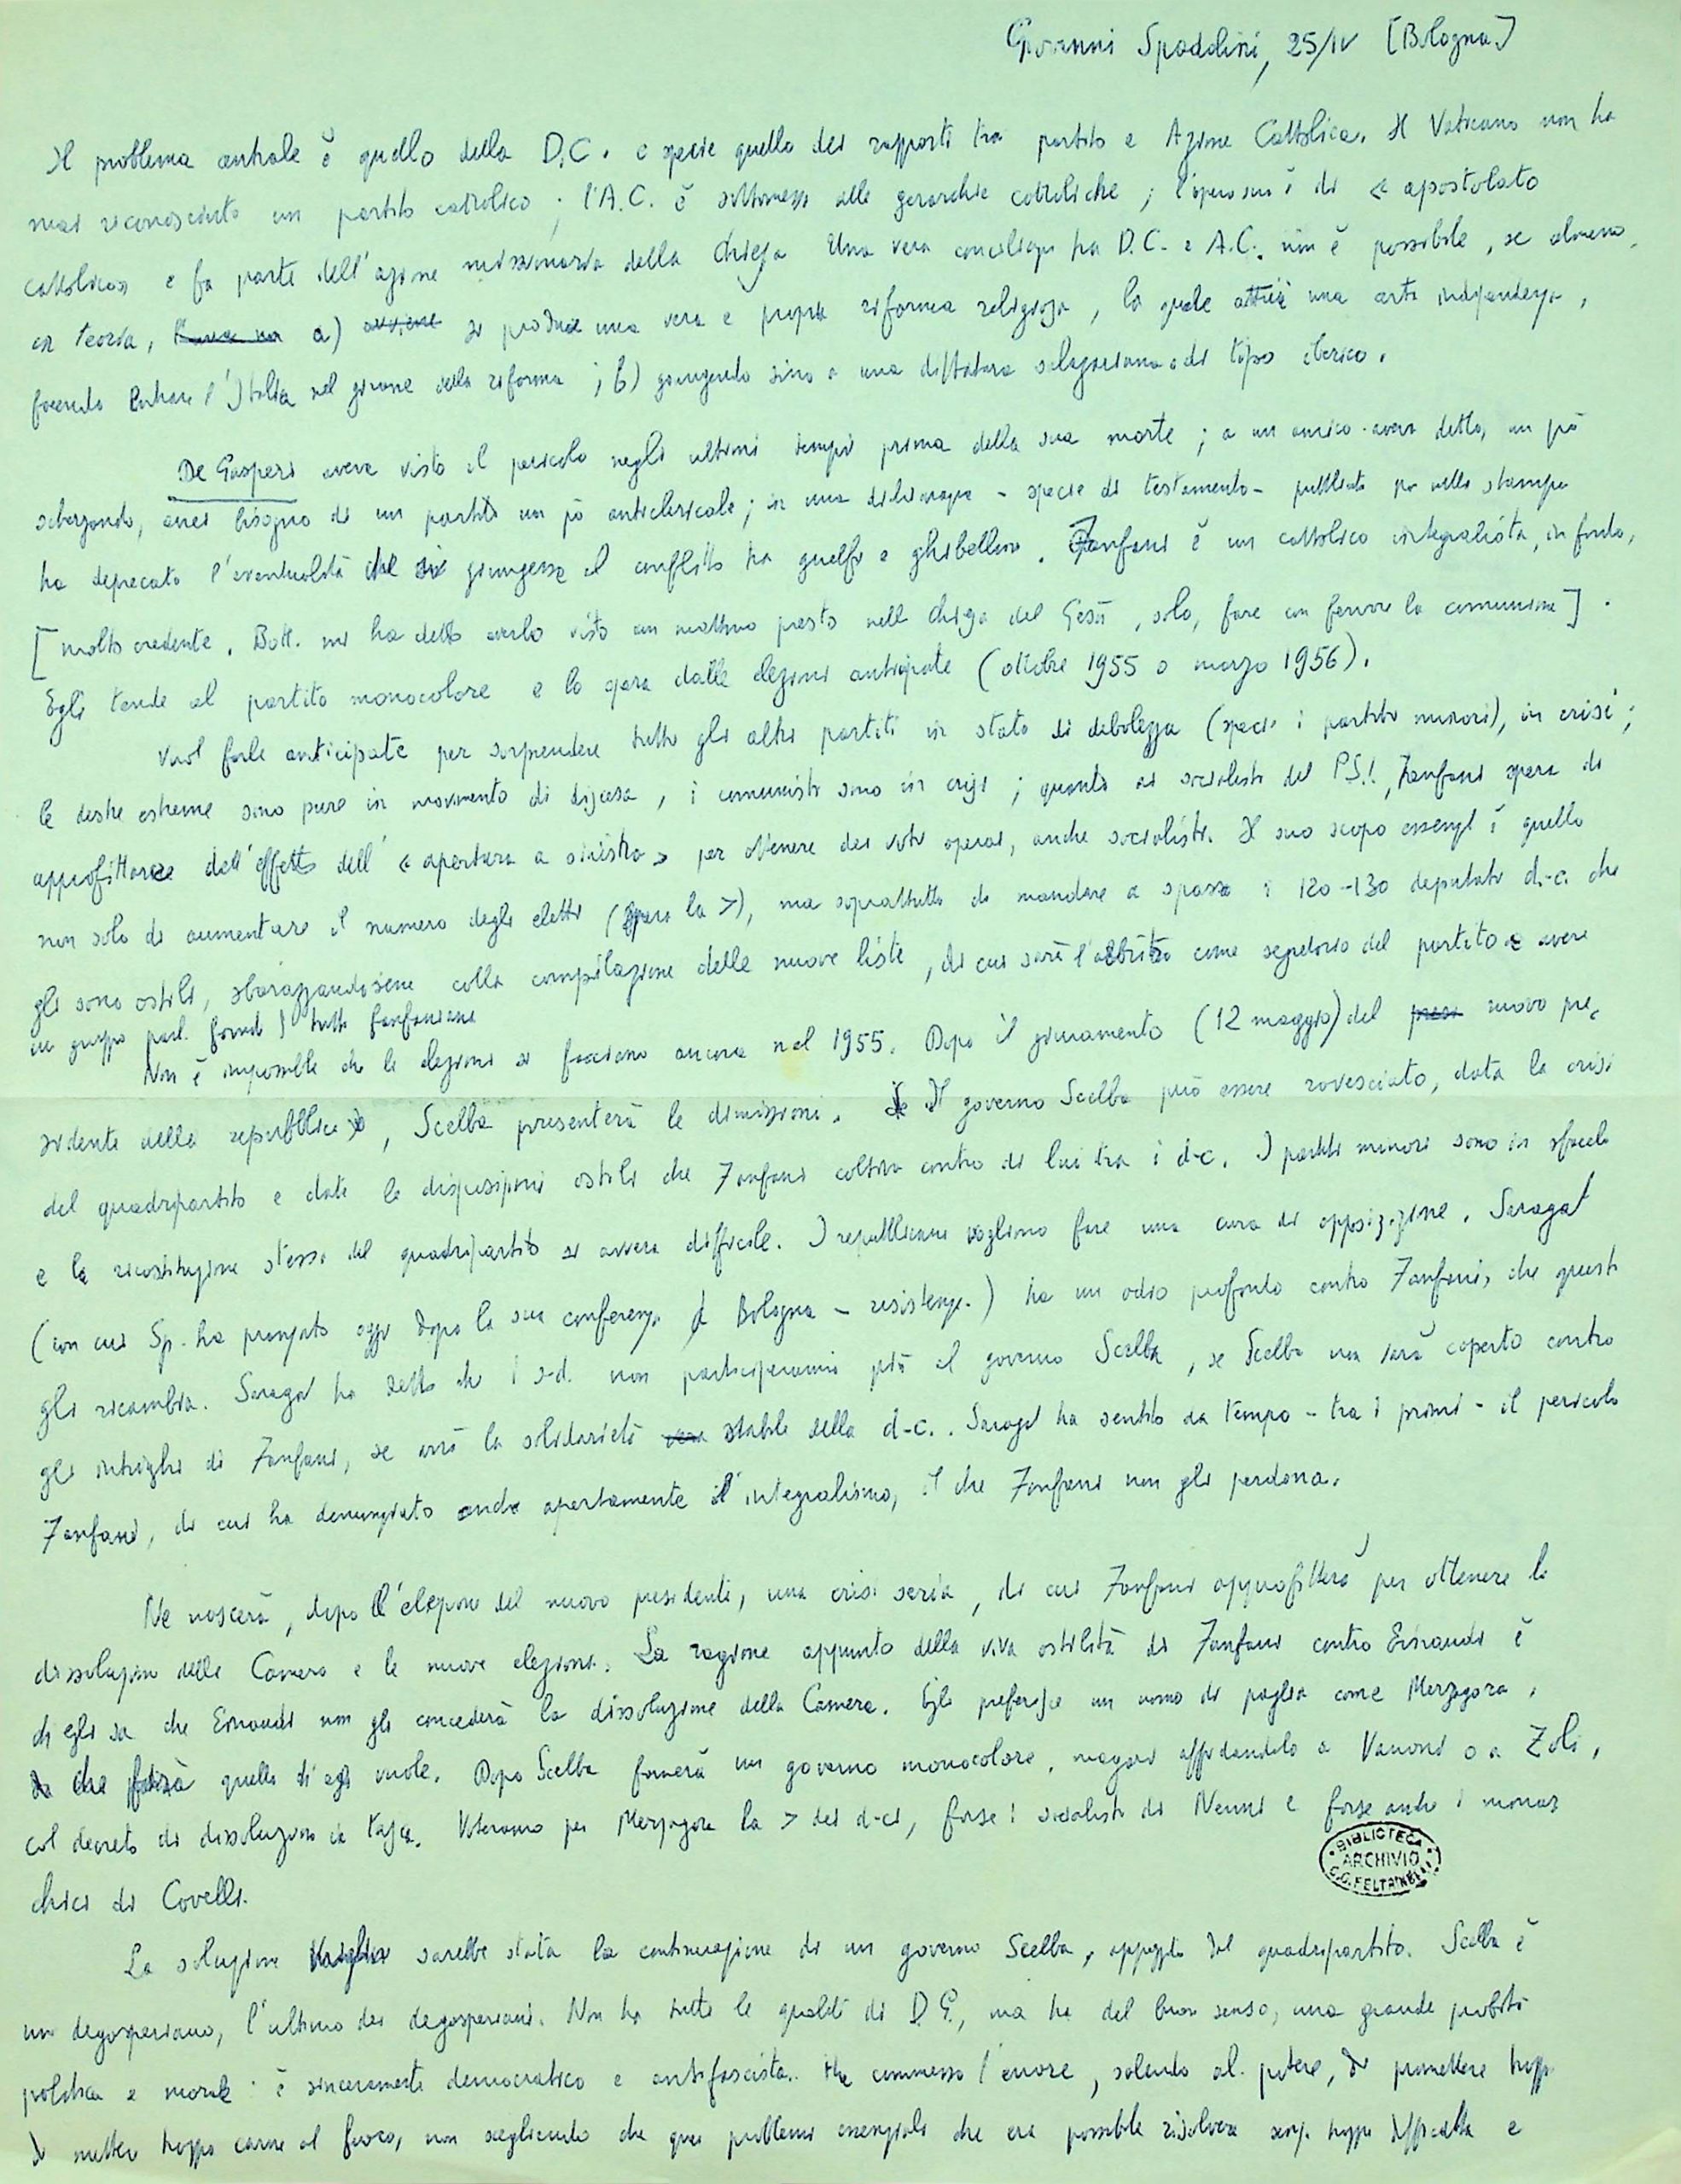 Giovanni Spadolini, 25/IV [Bologna]
Il problema centrale è quello della D.C. e specie quello dei rapporti tra partito e Azione Cattolica. Il Vaticano non ha
mai riconosciuto un partito cattolico; l'A.C. è sottomessa alle gerarchie cattoliche; l'opera sua è di « apostolato
cattolico» e fa parte dell'azione missionaria della Chiesa. Una vera conciliazione tra D.C. e A.C. non è possibile, se almeno,
in teoria, a) avviene si produce una vera e propria riforma religiosa, la quale attui una certa indipendenza,
facendo entrare l'Italia nel girone della riforma; b) giungendo sino a una dittatura salazariana o di tipo iberico.
De Gasperi aveva visto il pericolo negli ultimi tempi prima della sua morte; a un amico aveva detto, un pò
scherzando, avrei bisogno di un partito un pò anticlericale; in una dichiarazione - specie di testamento - pubblicata poi nella stampa
ha deprecato l'eventualità che si giungesse al conflitto tra guelfi e ghibellini. Fanfani è un cattolico integralista, in fondo,
[molto credente. Bott. mi ha detto averlo visto un mattino presto nella chiesa del Gesù, solo, fare con fervore la comunione].
Egli tende al partito monocolore e lo spera dalle elezioni anticipate (ottobre 1955 o marzo 1956).
Vuol farle anticipate per sorprendere tutti gli altri partiti in stato di debolezza (specie i partiti minori), in crisi;
le destre estreme sono pure in movimento di discesa, i comunisti sono in crisi; quanto ai socialisti del P.S.I., Fanfani spera di
approfittare dell'effetto dell'« apertura a sinistra » per ottenere dei voti operai, anche socialisti. Il suo scopo essenzl è quello
non solo di aumentare il numero degli eletti (spera la >), ma soprattutto di mandare a spasso i 120-130 deputati d.-c. che
gli sono ostili, sbarazzandosene colla compilazione delle nuove liste, di cui sarà l'arbitro come segretario del partito e avere
un gruppo parl. tutto fanfaniano
Non è impossibile che le elezioni si facciano ancora nel 1955. Dopo il giuramento (12 maggio) del nuovo pre-
sidente della repubblica, Scelba presenterà le dimissioni. Il governo Scelba può essere rovesciato, data la crisi
del quadripartito e date le disposizioni ostili che Fanfani coltiva contro di lui tra i d-c. I partiti minori sono in sfacelo
e la ricostituzione stessa del quadripartito si avvera difficile. I repubblicani vogliono fare una cura di opposizione. Saragat
(con cui Sp. ha pranzato oggi dopo la sua conferenza a Bologna - resistenza.) ha un odio profondo contro Fanfani, che questi
gli ricambia. Saragat ha detto che i s-d. non parteciperanno più al governo Scelba, se Scelba non sarà coperto contro
gli intrighi di Fanfani, se avrà la solidarietà stabile della d-c.. Saragat ha sentito da tempo - tra i primi - il pericolo
Fanfani, di cui ha denunziato anche apertamente l'integralismo, il che Fanfani non gli perdona.
Ne nascerà, dopo l'elezione del nuovo presidente, una crisi seria, di cui Fanfani approfitterà per ottenere lo
dissoluzione della Camera e le nuove elezioni. La ragione appunto della viva ostilità di Fanfani contro Einaudi è
ch egli sa che Einaudi non gli concederà la dissoluzione della Camera. Egli preferisce un uomo di paglia come Merzagora,
che farà quello ch'egli vuole. Dopo Scelba formerà un governo monocolore, magari affidandolo a Vanoni o a Zoli,
col decreto di dissoluzione in tasca. Voteranno per Merzagora la > dei d-ci, forse i socialisti di Nenni e forse anche i monar
chici di Covelli.
BIBLIOTECA
ARCHIVIO
G.G. FELTRINELLI
La soluzione migliore sarebbe stata la continuazione di un governo Scelba, appoggiato dal quadripartito. Scelba è
un degasperiano, l'ultimo dei degasperiani. Non ha tutte le qualità di D.G., ma ha del buon senso, una grande probità
politica e morale: è sinceramente democratico e antifascista. Ha commesso l'errore, salendo al potere, di promettere troppo
di mettere troppa carne al fuoco, non scegliendo che quei problemi essenziali che era possibile risolvere senza troppa difficoltà e